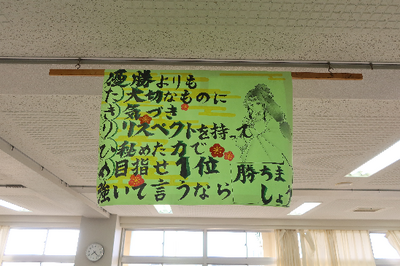 優勝よりも
た）大切なものに
き）気づき
り）リスペクトを持って
ひ）秘めた力で
め）目指せ1位
強いて言うなら
勝ちま
しょう